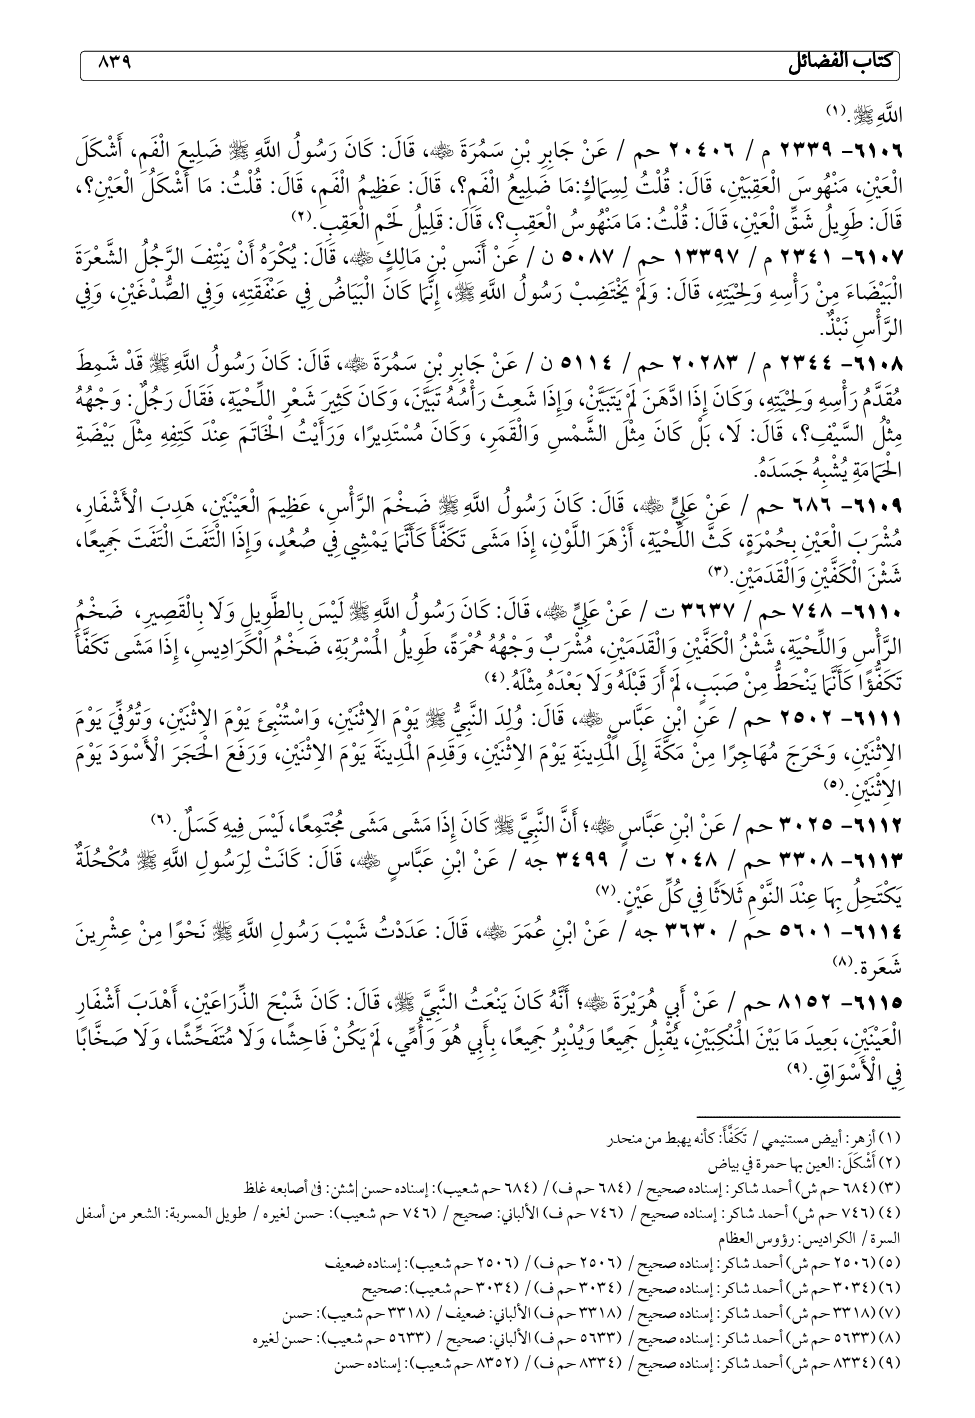 كتاب الفضائل ٨٣٩
اللَّهِ ﷺ.(١)
٦١٠٦- ٢٣٣٩ م / ٢٠٤٠٦ حم / عَنْ جَابِرِ بْنِ سَمُرَةَ ﵁، قَالَ: كَانَ رَسُولُ اللَّهِ ﷺ ضَلِيعَ الْفَمِ، أَشْكَلَ
الْعَيْنِ، مَنْهُوسَ الْعَقِبَيْنِ، قَالَ: قُلْتُ لِسِمَاكٍ:مَا ضَلِيعُ الْفَمِ؟، قَالَ: عَظِيمُ الْفَمِ، قَالَ: قُلْتُ: مَا أَشْكَلُ الْعَيْنِ؟،
قَالَ: طَوِيلُ شَقِّ الْعَيْنِ، قَالَ: قُلْتُ: مَا مَنْهُوسُ الْعَقِبِ؟، قَالَ: قَلِيلُ لَحْمِ الْعَقِبِ.(٢)
٦١٠٧- ٢٣٤١ م / ١٣٣٩٧ حم / ٥٠٨٧ ن / عَنْ أَنَسِ بْنِ مَالِكٍ ﵁، قَالَ: يُكْرَهُ أَنْ يَنْتِفَ الرَّجُلُ الشَّعْرَةَ
الْبَيْضَاءَ مِنْ رَأْسِهِ وَلِحْيَتِهِ، قَالَ: وَلَمْ يَخْتَضِبْ رَسُولُ اللَّهِ ﷺ، إِنَّمَا كَانَ الْبَيَاضُ فِي عَنْفَقَتِهِ، وَفِي الصُّدْغَيْنِ، وَفِي
الرَّأْسِ نَبْذٌ.
٦١٠٨- ٢٣٤٤ م / ٢٠٢٨٣ حم / ٥١١٤ ن / عَنْ جَابِرِ بْنِ سَمُرَةَ ﵁، قَالَ: كَانَ رَسُولُ اللَّهِ ﷺ قَدْ شَمِطَ
مُقَدَّمُ رَأْسِهِ وَلِحْيَتِهِ، وَكَانَ إِذَا ادَّهَنَ لَمْ يَتَبَيَّنْ، وَإِذَا شَعِثَ رَأْسُهُ تَبَيَّنَ، وَكَانَ كَثِيرَ شَعْرِ اللِّحْيَةِ، فَقَالَ رَجُلٌ: وَجْهُهُ
مِثْلُ السَّيْفِ؟، قَالَ: لَا، بَلْ كَانَ مِثْلَ الشَّمْسِ وَالْقَمَرِ، وَكَانَ مُسْتَدِيرًا، وَرَأَيْتُ الْخَاتَمَ عِنْدَ كَتِفِهِ مِثْلَ بَيْضَةِ
الْحَمَامَةِ يُشْبِهُ جَسَدَهُ.
٦١٠٩- ٦٨٦ حم / عَنْ عَلِيٍّ ﵁، قَالَ: كَانَ رَسُولُ اللَّهِ ﷺ ضَخْمَ الرَّأْسِ، عَظِيمَ الْعَيْنَيْنِ، هَدِبَ الْأَشْفَارِ،
مُشْرَبَ الْعَيْنِ بِحُمْرَةٍ، كَثَّ اللِّحْيَةِ، أَزْهَرَ اللَّوْنِ، إِذَا مَشَى تَكَفَّأَ كَأَنَّمَا يَمْشِي فِي صُعُدٍ، وَإِذَا الْتَفَتَ الْتَفَتَ جَمِيعًا،
شَثْنَ الْكَفَّيْنِ وَالْقَدَمَيْنِ.(٣)
٦١١٠- ٧٤٨ حم / ٣٦٣٧ ت / عَنْ عَلِيٍّ ﵁، قَالَ: كَانَ رَسُولُ اللَّهِ ﷺ لَيْسَ بِالطَّوِيلِ وَلَا بِالْقَصِيرِ، ضَخْمُ
الرَّأْسِ وَاللِّحْيَةِ، شَثْنُ الْكَفَّيْنِ وَالْقَدَمَيْنِ، مُشْرَبٌ وَجْهُهُ حُمْرَةً، طَوِيلُ الْمَسْرُبَةِ، ضَخْمُ الْكَرَادِيسِ، إِذَا مَشَى تَكَفَّأَ
تَكَفُّؤًا كَأَنَّمَا يَنْحَطُّ مِنْ صَبَبٍ، لَمْ أَرَ قَبْلَهُ وَلَا بَعْدَهُ مِثْلَهُ.(٤)
٦١١١- ٢٥٠٢ حم / عَنِ ابْنِ عَبَّاسٍ ﵁، قَالَ: وُلِدَ النَّبِيُّ ﷺ يَوْمَ الِاثْنَيْنِ، وَاسْتُنْبِئَ يَوْمَ الِاثْنَيْنِ، وَتُوُفِّيَ يَوْمَ
الِاثْنَيْنِ، وَخَرَجَ مُهَاجِرًا مِنْ مَكَّةَ إِلَى الْمَدِينَةِ يَوْمَ الِاثْنَيْنِ، وَقَدِمَ الْمَدِينَةَ يَوْمَ الِاثْنَيْنِ، وَرَفَعَ الْحَجَرَ الْأَسْوَدَ يَوْمَ
الِاثْنَيْنِ.(٥)
٦١١٢- ٣٠٢٥ حم / عَنْ ابْنِ عَبَّاسٍ ﵁؛ أَنَّ النَّبِيَّ ﷺ كَانَ إِذَا مَشَى مَشَى مُجْتَمِعًا، لَيْسَ فِيهِ كَسَلٌ.(٦)
٦١١٣- ٣٣٠٨ حم / ٢٠٤٨ ت / ٣٤٩٩ جه / عَنْ ابْنِ عَبَّاسٍ ﵁، قَالَ: كَانَتْ لِرَسُولِ اللَّهِ ﷺ مُكْحُلَةٌ
يَكْتَحِلُ بِهَا عِنْدَ النَّوْمِ ثَلَاثًا فِي كُلِّ عَيْنٍ.(٧)
٦١١٤- ٥٦٠١ حم / ٣٦٣٠ جه / عَنْ ابْنِ عُمَرَ ﵁، قَالَ: عَدَدْتُ شَيْبَ رَسُولِ اللَّهِ ﷺ نَحْوًا مِنْ عِشْرِينَ
شَعَرة.(٨)
٦١١٥- ٨١٥٢ حم / عَنْ أَبِي هُرَيْرَةَ ﵁؛ أَنَّهُ كَانَ يَنْعَتُ النَّبِيَّ ﷺ، قَالَ: كَانَ شَبْحَ الذِّرَاعَيْنِ، أَهْدَبَ أَشْفَارِ
الْعَيْنَيْنِ، بَعِيدَ مَا بَيْنَ الْمَنْكِبَيْنِ، يُقْبِلُ جَمِيعًا وَيُدْبِرُ جَمِيعًا، بِأَبِي هُوَ وَأُمِّي، لَمْ يَكُنْ فَاحِشًا، وَلَا مُتَفَحِّشًا، وَلَا صَخَّابًا
فِي الْأَسْوَاقِ.(٩)
(١) أزهر: أبيض مستنيمي / تَكَفَّأَ: كأنه يهبط من منحدر
(٢) أَشْكَلَ: العين بها حمرة في بياض
(٣) (٦٨٤ حم ش) أحمد شاكر: إسناده صحيح / (٦٨٤ حم ف) / (٦٨٤ حم شعيب): إسناده حسن |شثن: فى أصابعه غلظ
(٤) (٧٤٦ حم ش) أحمد شاكر: إسناده صحيح / (٧٤٦ حم ف) الألباني: صحيح / (٧٤٦ حم شعيب): حسن لغيره / طويل المسربة: الشعر من أسفل
السرة / الكراديس: رؤوس العظام
(٥) (٢٥٠٦ حم ش) أحمد شاكر: إسناده صحيح / (٢٥٠٦ حم ف) / (٢٥٠٦ حم شعيب): إسناده ضعيف
(٦) (٣٠٣٤ حم ش) أحمد شاكر: إسناده صحيح / (٣٠٣٤ حم ف) / (٣٠٣٤ حم شعيب): صحيح
(٧) (٣٣١٨ حم ش) أحمد شاكر: إسناده صحيح / (٣٣١٨ حم ف) الألباني: ضعيف / (٣٣١٨ حم شعيب): حسن
(٨) (٥٦٣٣ حم ش) أحمد شاكر: إسناده صحيح / (٥٦٣٣ حم ف) الألباني: صحيح / (٥٦٣٣ حم شعيب): حسن لغيره
(٩) (٨٣٣٤ حم ش) أحمد شاكر: إسناده صحيح / (٨٣٣٤ حم ف) / (٨٣٥٢ حم شعيب): إسناده حسن